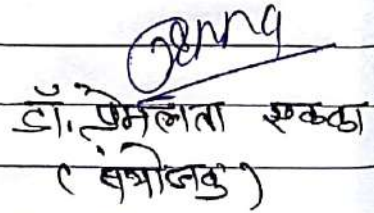 डॉ. प्रेमलता एक्का
(संयोजक)